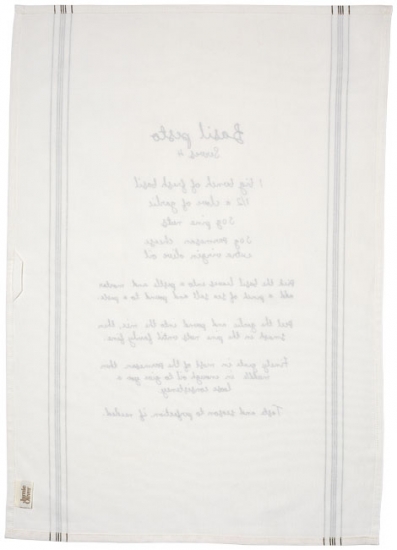 Basil pesto
Serves 4
1 big bunch of fresh basil
1/2 a clove of garlic
30g pine nuts
30g parmesan cheese
extra virgin olive oil
Pick the basil leaves into a pestle and mortar
add a pinch of sea salt and pound to a paste
Peel the garlic and pound into the mix, then
smash in the pine nuts until fairly fine
Finely grate in most of the parmesan, then
muddle in enough oil to give you a
loose consistency
Taste and season to perfection, if needed
Jamie
Oliver